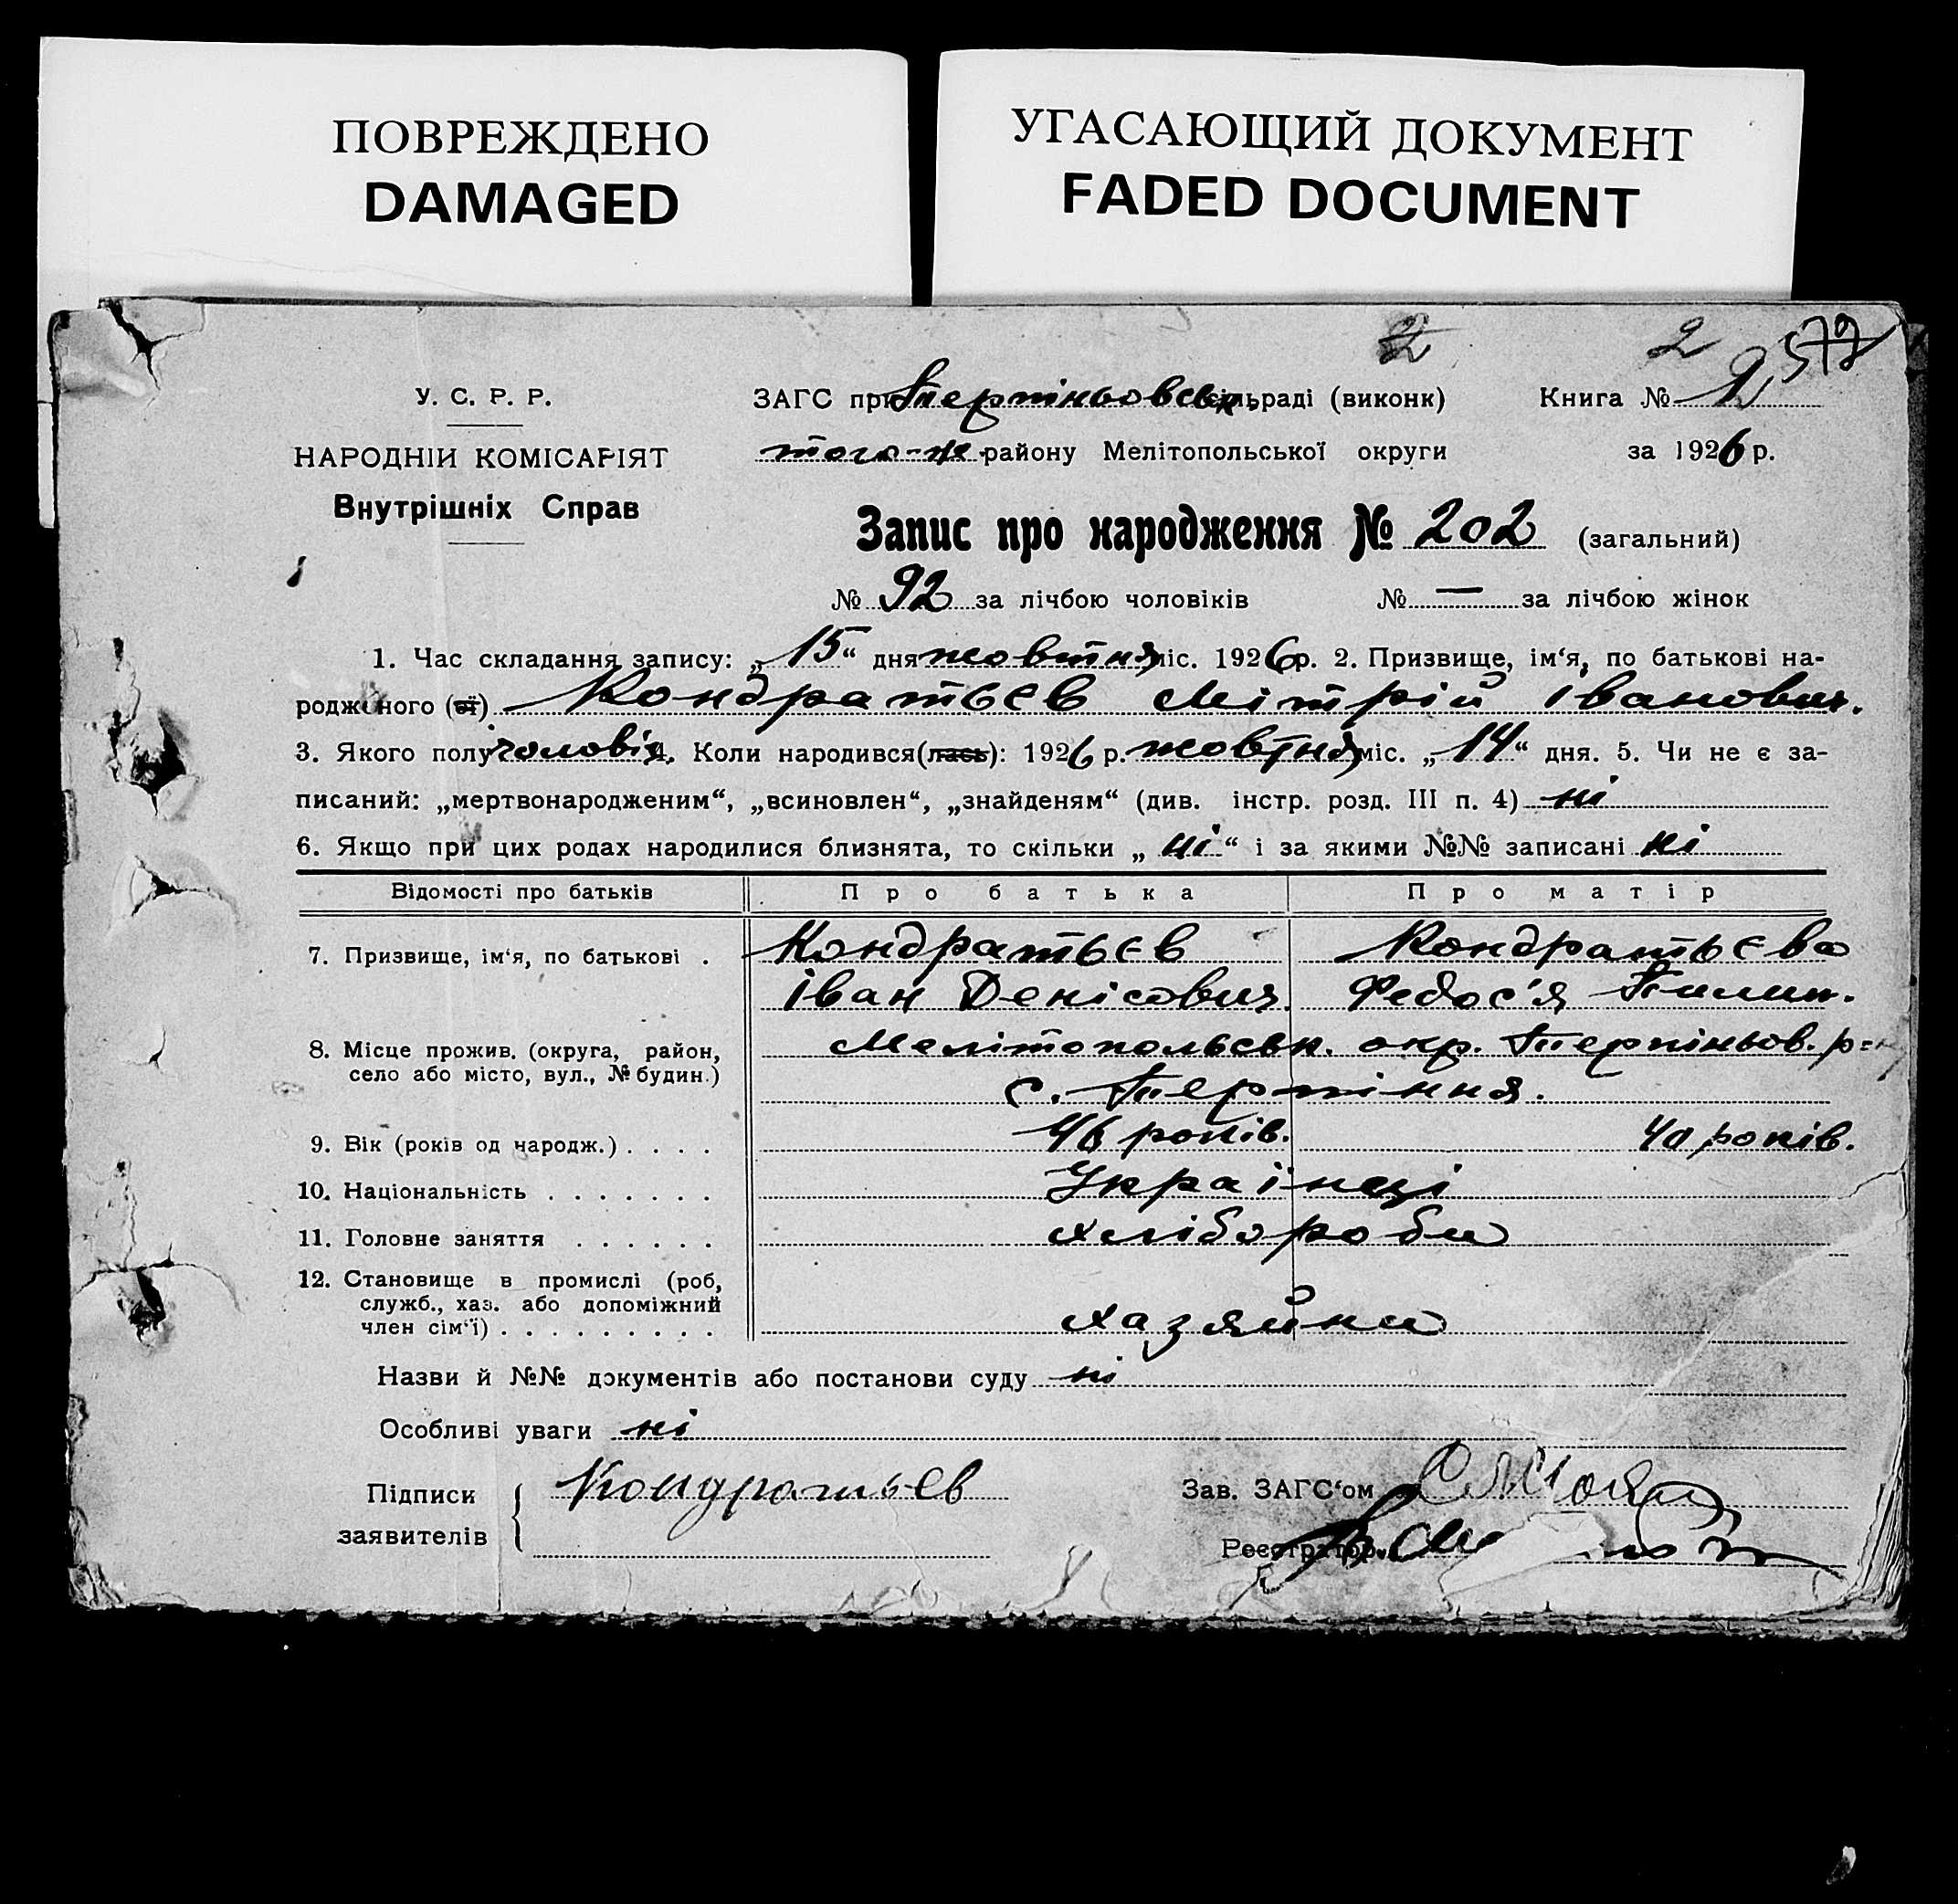 ПОВРЕЖДЕНО
DAMAGED
УГАСАЮЩИЙ ДОКУМЕНТ
FADED DOCUMENT
2 2 572
У. С. Р. Р.
НАРОДНІЙ КОМІСАРІЯТ
Внутрішніх Справ
ЗАГС при Терпіньовськ. сільраді (виконк)
того-ж району Мелітопольської округи
Книга № 2
за 1926 р.
Запис про народження № 202 (загальний)
№ 92 за лічбою чоловіків № — за лічбою жінок
1. Час складання запису: „15“ дня жовтня міс. 1926 р. 2. Призвище, ім‘я, по батькові на-
родженого (ої) Кондратьєв Мітрій Іванович.
3. Якого полу чоловіч. 4. Коли народився(лась): 1926 р. жовтня міс. „14“ дня. 5. Чи не є за-
писаний: „мертвонародженим“, „всиновлен“, „знайденям“ (див. інстр. розд. III п. 4) ні
6. Якщо при цих родах народилися близнята, то скільки „ні“ і за якими №№ записані ні
Відомості про батьків Про батька Про матір
7. Призвище, ім‘я, по батькові . Кондратьєв Кондратьєва
Іван Денісович. Федос'я Пилип.
8. Місце прожив. (округа, район, Мелітопольськ. окр. Терпіньов. р-н
село або місто, вул., № будин.) с. Терпіння.
9. Вік (років од народж.) . . . . 46 років. 40 років.
10. Національність . . . . . . . Українці
11. Головне заняття . . . . . . хлібороби
12. Становище в промислі (роб,
служб., хаз. або допоміжний
член сім‘ї) . . . . . . . . . хазяйни
Назви й №№ документів або постанови суду ні
Особливі уваги ні
Підписи
заявителів
Кондратьев
Зав. ЗАГС‘ом
Реєстратор